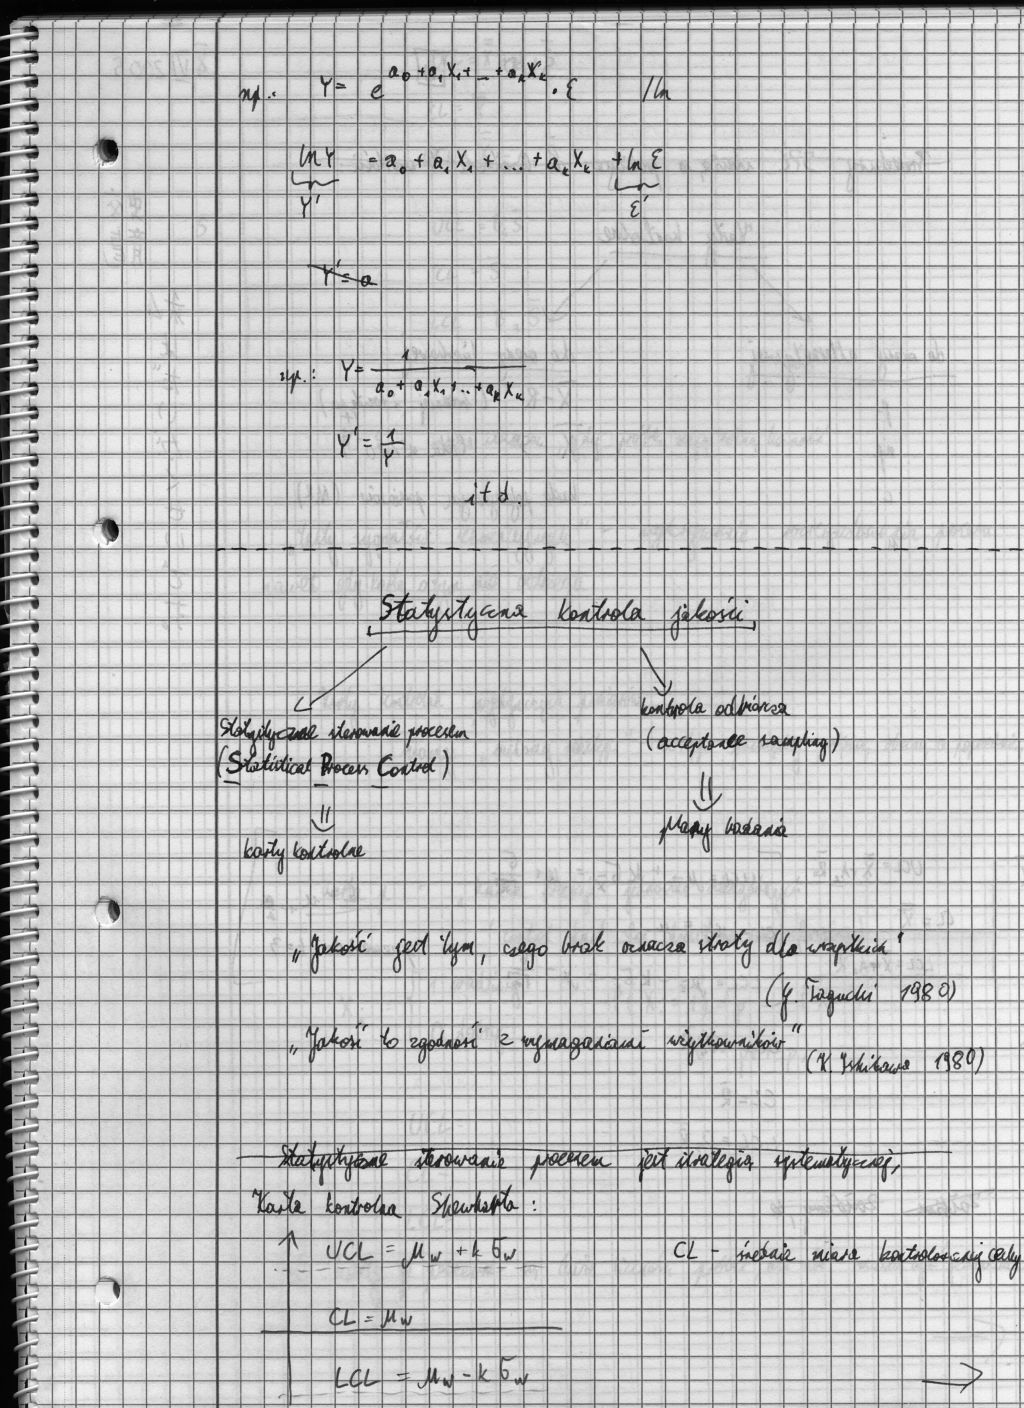 np.: Y = e^(a₀ + a₁X₁ + ... + aₖXₖ) · ε /ln
ln Y = a₀ + a₁X₁ + ... + aₖXₖ + ln ε
Y' ε'
Y' = a
np.: Y = 1/(a₀ + a₁X₁ + ... + aₖXₖ)
Y' = 1/Y
itd.
Statystyczna kontrola jakości
Statystyczne sterowanie procesem
(Statistical Process Control)
kontrola odbiorcza
(acceptance sampling)
karty kontrolne
plany badania
„Jakość jest tym, czego brak oznacza straty dla wszystkich"
(G. Taguchi 1980)
„Jakość to zgodność z wymaganiami użytkowników"
(K. Ishikawa 1980)
Statystyczne sterowanie procesem jest strategią systematycznej,
Karta kontrolna Shewharta:
UCL = μw + k σw
CL - średnia miara kontrolowanej cechy
CL = μw
LCL = μw - k σw